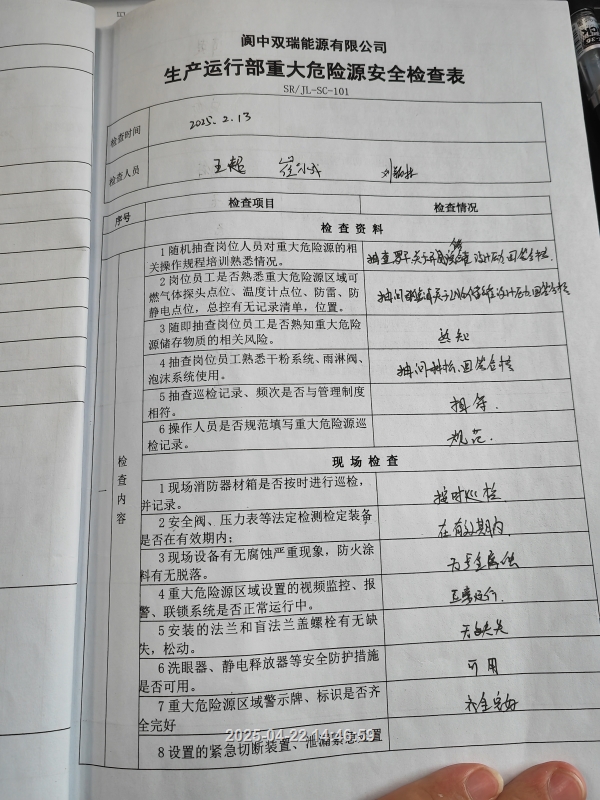 阆中双瑞能源有限公司
生产运行部重大危险源安全检查表
SR/JL-SC-101
检查时间 2025.2.13
检查人员 王超
序号 检查项目 检查情况
检查资料
1 随机抽查岗位人员对重大危险源的相
关操作规程培训熟悉情况。
2 岗位员工是否熟悉重大危险源区域可
燃气体探头点位、温度计点位、防雷、防
静电点位，总控有无记录清单，位置。
3 随即抽查岗位员工是否熟知重大危险
源储存物质的相关风险。
熟知
4 抽查岗位员工熟悉干粉系统、雨淋阀、
泡沫系统使用。
回答合格
5 抽查巡检记录、频次是否与管理制度
相符。
相符.
6 操作人员是否规范填写重大危险源巡
检记录。
规范.
一
检查内容
现场检查
1 现场消防器材箱是否按时进行巡检，
并记录。
按时巡检
2 安全阀、压力表等法定检测检定装备
是否在有效期内；
在有效期内.
3 现场设备有无腐蚀严重现象，防火涂
料有无脱落。
4 重大危险源区域设置的视频监控、报
警、联锁系统是否正常运行中。
正常运行.
5 安装的法兰和盲法兰盖螺栓有无缺
失，松动。
无缺失
6 洗眼器、静电释放器等安全防护措施
是否可用。
可用
7 重大危险源区域警示牌、标识是否齐
全完好
齐全完好
8 设置的紧急切断装置、泄漏紧急处置
2025-04-22 14:46:59